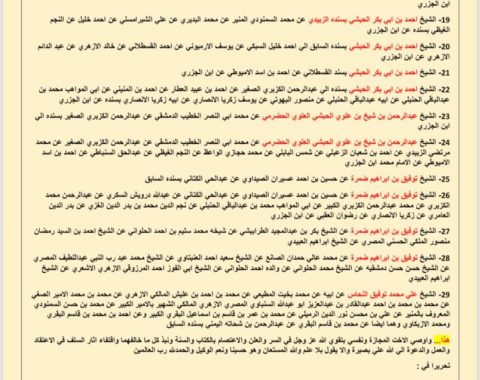 ابن الجزري
19- الشيخ احمد بن ابي بكر الحبشي بسنده الزبيدي عن محمد السمنودي المنير عن محمد البديري عن علي الشبراملسي عن احمد خليل عن النجم
الغيظي بسنده عن ابن الجزري
20- الشيخ احمد بن ابي بكر الحبشي بسنده السابق الي احمد خليل السبكي عن يوسف الارميوني عن احمد القسطلاني عن خالد الازهري عن عبد الدائم
الازهري عن ابن الجزري
21- الشيخ احمد بن ابي بكر الحبشي بسند القسطلاني عن احمد بن اسد الاميوطي عن ابن الجزري
22- الشيخ احمد بن ابي بكر الحبشي بسنده الي عبدالرحمن الكزبري الصغير عن احمد بن عبيد العطار عن احمد بن المنيني عن ابي المواهب محمد بن
عبدالباقي الحنبلي عن ابيه عبدالباقي الحنبلي عن منصور البهوتي عن يوسف زكريا الانصاري عن ابيه زكريا الانصاري بسنده عن ابن الجزري
23- الشيخ عبدالرحمن بن شيخ بن علوي الحبشي العلوي الحضرمي عن محمد ابي النصر الخطيب الدمشقي عن عبدالرحمن الكزبري الصغير بسنده الي
ابن الجزري
24- الشيخ عبدالرحمن بن شيخ بن علوي الحبشي العلوي الحضرمي عن محمد ابي النصر الخطيب الدمشقي عن عبدالرحمن الكزبري الصغير عن محمد
مرتضي الزبيدي عن احمد بن شعبان الزعبلي عن شمس البابلي عن محمد حجازي الواعظ عن النجم الغيطي عن عبدالحق السنباطي عن احمد بن اسد
الاميوطي عن الامام محمد ابن الجزري
25- الشيخ توفيق بن ابراهيم ضمرة عن حسين بن احمد عسيران الصيداوي عن عبدالحي الكتاني بسنده السابق
26- الشيخ توفيق بن ابراهيم ضمرة عن حسين بن احمد عسيران الصيداوي عن عبدالحي الكتاني عن عبدالله درويش السكري عن عبدالرحمن محمد
الكزبري عن محمد عبدالرحمن الكزبري الكبير عن ابي المواهب محمد بن عبدالباقي الحنبلي عن نجم الدين محمد بن بدر الدين الغزي عن بدر الدين
العامري عن زكريا الانصاري عن رضوان العقبي عن ابن الجزري
27- الشيخ توفيق بن ابراهيم ضمرة عن الشيخ بكر بن عبدالمجيد الطرابيشي عن شيخه محمد سليم بن احمد الحلواني عن الشيخ احمد بن السيد رمضان
منصور الملكي الحسني المصري عن الشيخ ابراهيم العبيدي
28- الشيخ توفيق بن ابراهيم ضمرة عن محمد عالي حمدان الصالح عن الشيخ سعيد احمد العنبتاوي عن الشيخ محمد عبد رب النبي عبداللطيف المصري
عن الشيخ حسن حسن دمشقيه عن الشيخ محمد الحلواني عن والده احمد الحلواني عن الشيخ ابي الفوز احمد المرزوقي الازهري الاشعري عن الشيخ
ابراهيم العبيدي
29- الشيخ علي محمد توفيق النحاس عن ابيه عن محمد بخيت المطيعي عن محمد بن احمد بن عليش المالكي الازهري عن محمد بن محمد الامير الصغير
عن محمد بن محمد بن احمد عبدالقادر بن عبدالعزيز ابو عبدالله السنباوي المصري الازهري المالكي الشهير بالامير الكبير عن محمد بن حسن السمنودي
المعروف بالمنير عن علي بن محسن نور الدين الرميلي عن محمد بن عمر بن قاسم بن اسماعيل البقري الكبير وعن احمد بن محمد بن بكر البقري
ومحمد الازبكاوي وهما ايضا عن محمد بن قاسم البقري الكبير عن عبدالرحمن بن شحاته اليمني بسنده السابق
هذا... واوصي الاخت المجازة ونفسي بتقوي الله عز وجل في السر والعلن والاعتصام بالكتاب والسنة ونبذ كل ما خالفهما واقتفاء اثار السلف في الاعتقاد
والعمل والدعوة الي الله علي بصيرة والا يقول بلا علم والله المستعان وهو حسبنا ونعم الوكيل والحمدلله رب العالمين
تحريرا في :